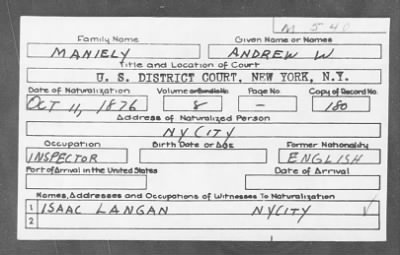 M 540
Family Name Given Name or Names
MANIELY ANDREW W
Title and Location of Court
U. S. DISTRICT COURT, NEW YORK, N.Y.
Date of Naturalization Volume or Bundle No. Page No. Copy of Record No.
OCT 11, 1876 8 - 180
Address of Naturalized Person
NYCITY
Occupation Birth Date or Age Former Nationality
INSPECTOR ENGLISH
Port of Arrival in the United States Date of Arrival
Names, Addresses and Occupations of Witnesses To Naturalization
1 ISAAC LANGAN NYCITY
2